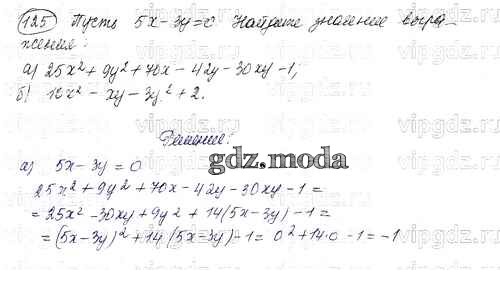 125 Пусть 5x-3y=c Найдите значение выра-
жения:
а) 25x²+9y²+70x-42y-30xy-1,
б) 10x²-xy-3y²+2.
Решение:
gdz.moda
а) 5x-3y=0
25x²+9y²+70x-42y-30xy-1=
=25x²-30xy+9y²+14(5x-3y)-1=
=(5x-3y)²+14(5x-3y)-1=0²+14·0-1=-1